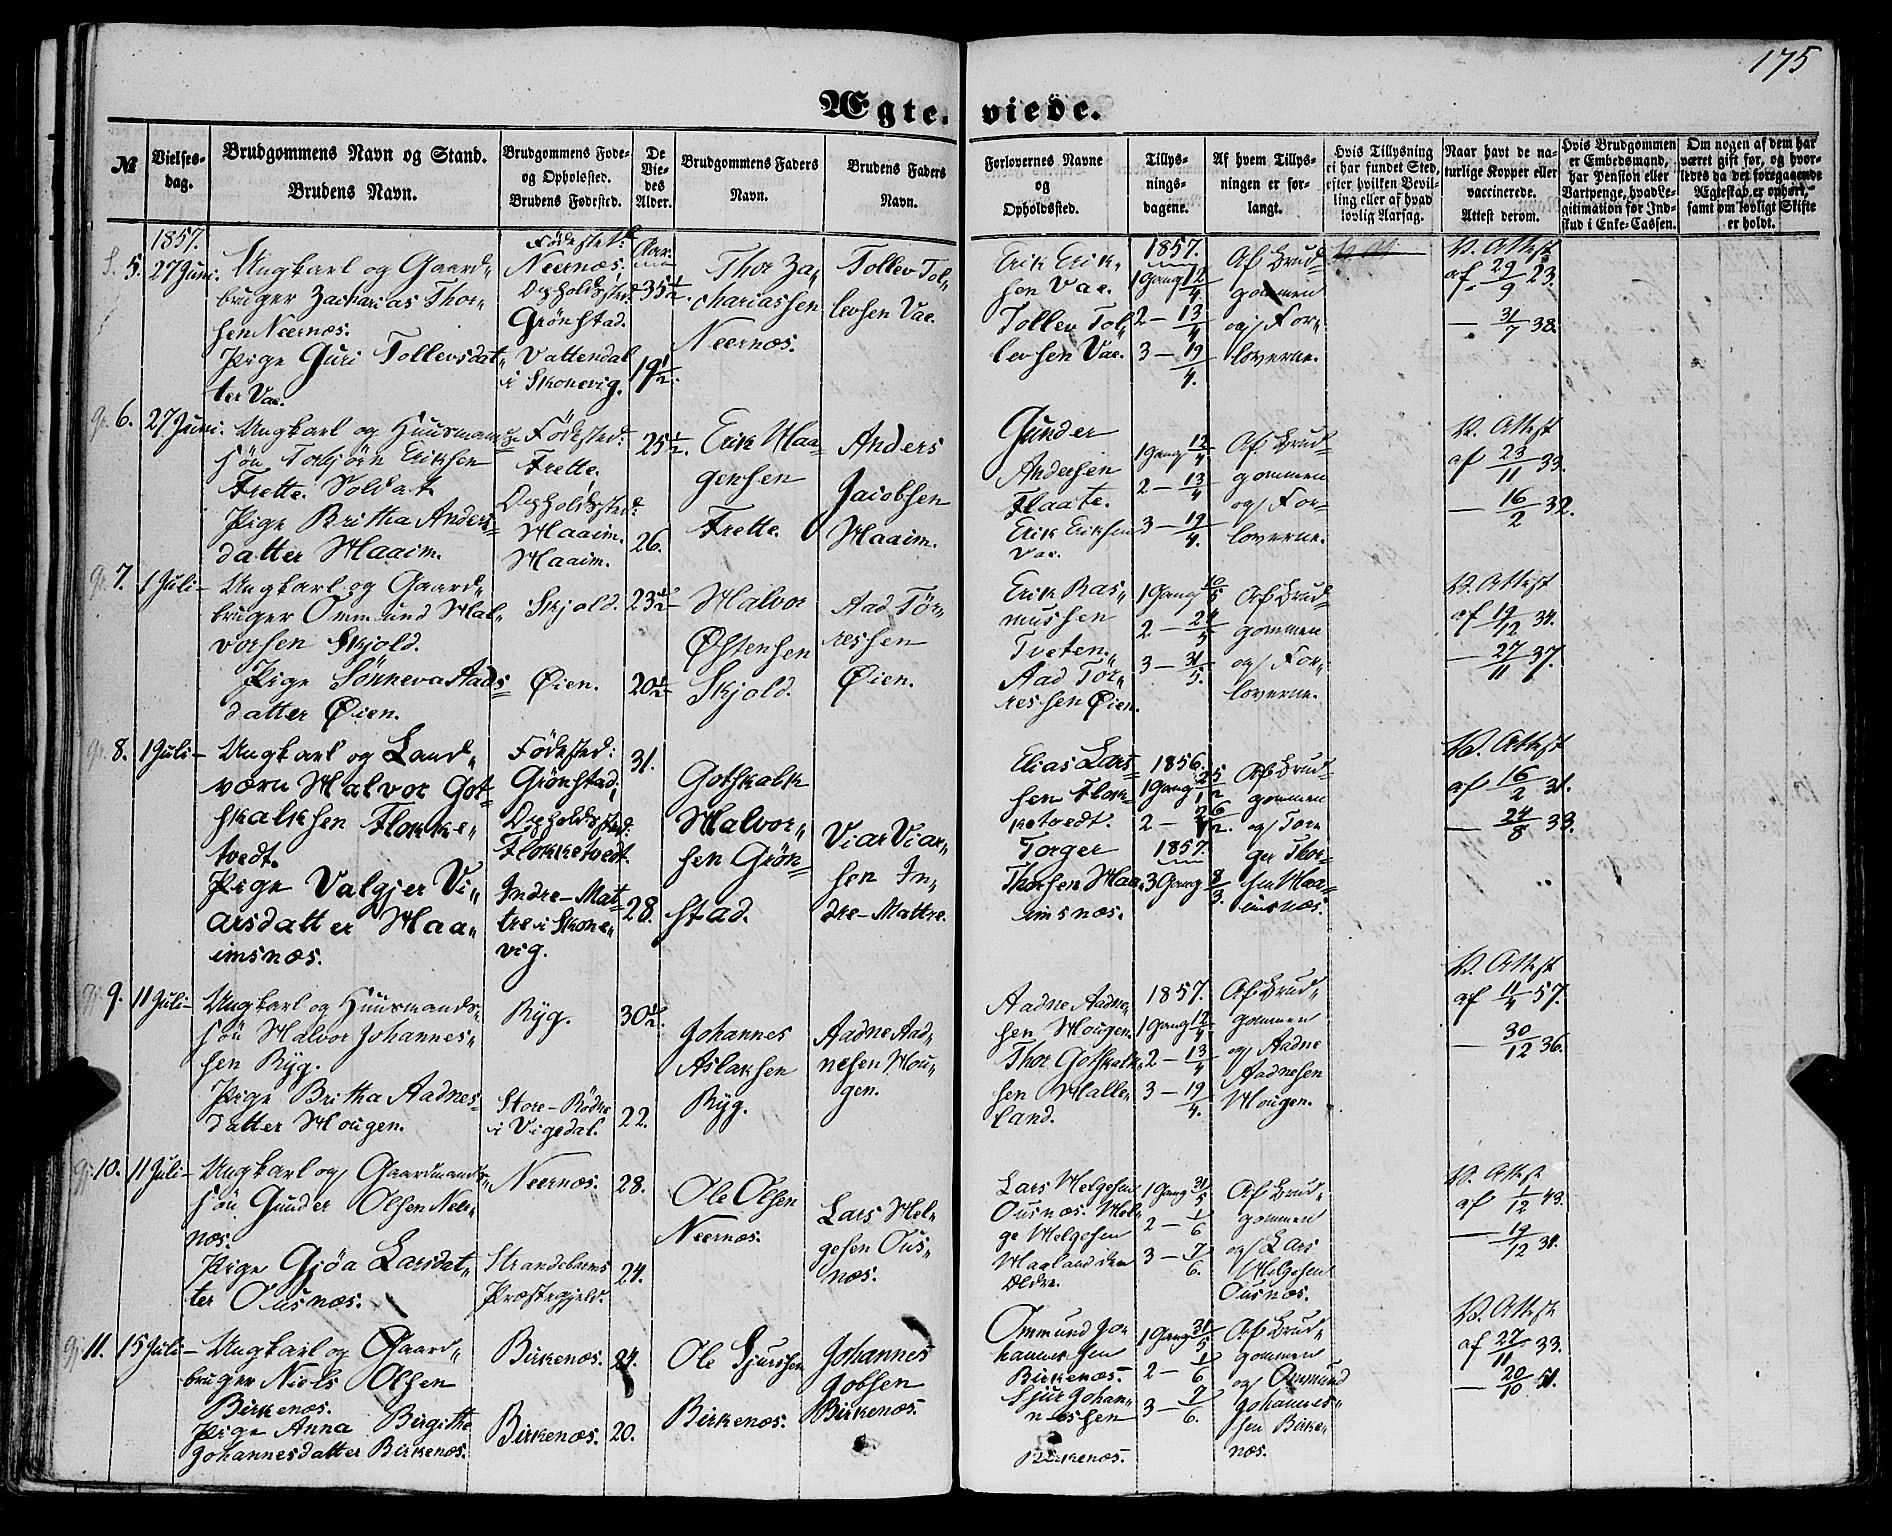 175
Ægte-viede.
№
Vielses-
dag.
Brudgommens Navn og Stand.
Brudens Navn.
Brudgommens Føde-
og Opholdssted.
Brudens Fødested.
De
Vie-
des
Alder.
Brudgommens Faders
Navn.
Brudens Faders
Navn.
Forlovernes Navne
og
Opholdssted.
Tillys-
nings-
dagene.
Af hvem Tillys-
ningen er for-
langt.
Hvis Tillysning
ei har fundet Sted,
efter hvilken Bevil-
ling eller af hvad
lovlig Aarsag.
Naar havt de na-
turlige Kopper eller
vaccinerede.
Attest derom.
Hvis Brudgommen
er Embedsmand,
har Pension eller
Vartpenge, hvad Le-
gitimation før Ind-
skud i Enke-Cassen.
Om nogen af dem har
været gift før, og hvor-
ledes da det foregaaende
Ægteskab er ophørt,
samt om lovligt Skifte
er holdt.
1857.
5.
27 Juni.
Ungkarl og Gaard-
bruger Zacharias Thor-
sen Neernæs.
Pige Guri Tollevsdat-
ter Vae.
Fødested:
Neernæs;
Opholdssted:
Grönstad.
Vattendal
i Skonevig.
Aar.
35 1/2.
19 1/2.
Thor Za-
chariassen
Neernæs.
Tollev Tol-
levsen Vae.
Erik Erik-
sen Vae.
Tollev Tol-
levsen Vae.
1857.
1 Gang 12/4
2 — 13/4
3 — 19/4.
Af Brud-
gommen
og For-
loverne.
V. Attest
af 29/9 23.
— 31/7 38.
6.
27 Juni.
Ungkarl og Huusmands-
sön Torbjörn Eriksen
Frette. Soldat.
Pige Britha Anders-
datter Haaim.
Fødested:
Frette;
Opholdssted:
Haaim.
Haaim.
25 1/2.
26.
Erik Haa-
gensen
Frette.
Anders
Jacobsen
Haaim.
Gunder
Andersen
Flaate.
Erik Eriksen
Vae.
1 Gang 12/4
2 — 13/4
3 — 19/4.
Af Brud-
gommen
og For-
loverne.
V. Attest
af 23/11 33.
— 16/2 32.
7.
1 Juli
Ungkarl og Gaard-
bruger Ommund Hal-
vorsen Skjold.
Pige Sönneva Aads-
datter Øien.
Skjold.
Øien.
23 1/2
20 1/2
Halvor
Østensen
Skjold.
Aad Tör-
ressen
Øien.
Erik Ras-
mussen
Tveten.
Aad Tör-
ressen Øien.
1 Gang 10/5
2 — 24/5
3 — 31/5.
Af Brud-
gommen
og For-
loverne.
V. Attest
af 19/12 34.
— 27/11 37.
8.
1 Juli
Ungkarl og Land-
værn Halvor Got-
skalksen Flokke-
tvedt.
Pige Valgjer Vi-
arsdatter Haa-
imsnæs.
Fødested:
Grönstad;
Opholdssted:
Flokketvedt.
Indre-Mat-
tre i Skone-
vig.
31.
28.
Gotskalk
Halvor-
sen Grön-
stad.
Viar Viar-
sen In-
dre-Mattre.
Elias Lars-
sen Flok-
ketvedt.
Torger
Thorsen Haa-
imsnæs.
1856.
1 Gang 25/12
2 — 26/12.
1857.
3 Gang 8/3.
Af Brud-
gommen
og Tor-
ger Thor-
sen Haa-
imsnæs.
V. Attest
af 16/2 31.
— 24/8 33.
9.
11 Juli
Ungkarl og Huusmands-
sön Halvor Johannes-
sen Ryg.
Pige Britha Aadnes-
datter Hougen.
Ryg.
Store-Rödne
i Vigedal.
30 1/2.
22.
Johannes
Aslaksen
Ryg.
Aadne Aad-
nesen Hou-
gen.
Aadne Aadne-
sen Hougen.
Thor Gotskalk-
sen Halle-
land.
1857.
1 Gang 12/4
2 — 13/4
3 — 19/4.
Af Brud-
gommen
og Aadne
Aadnesen
Hougen.
V. Attest
af 11/4 57.
— 30/12 36.
10.
11 Juli
Ungkarl og Gaardmands-
sön Gunder Olsen Neer-
næs.
Pige Gjöa Larsdat-
ter Ousnæs.
Neernæs.
Strandebarms
Præstegjeld.
28.
24.
Ole Olsen
Neernæs.
Lars Hel-
gesen Ous-
næs.
Lars Helgesen
Ousnæs. Hel-
ge Helgesen
Haaland den
Ældre.
1 Gang 31/5
2 — 1/6
3 — 7/6.
Af Brud-
gommen
og Lars
Helgesen
Ousnæs.
V. Attest
af 1/12 43.
— 19/12 31.
11.
15 Juli
Ungkarl og Gaard-
bruger Niels Olsen
Birkenæs.
Pige Anna Birgithe
Johannesdatter Birkenæs.
Birkenæs.
Birkenæs.
24.
20.
Ole Sjurssen
Birkenæs.
Johannes
Jobsen
Birkenæs.
Ommund Jo-
hannessen
Birkenæs.
Sjur Johan-
nessen
Birkenæs.
1 Gang 31/5
2 — 1/6
3 — 7/6.
Af Brud-
gommen
og Ommund
Johannes-
sen Birke-
næs.
V. Attest
af 27/11 33.
— 20/10 51.